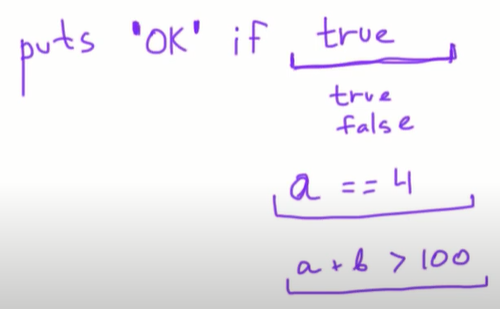 puts "OK" if true
true
false
a == 4
a + b > 100